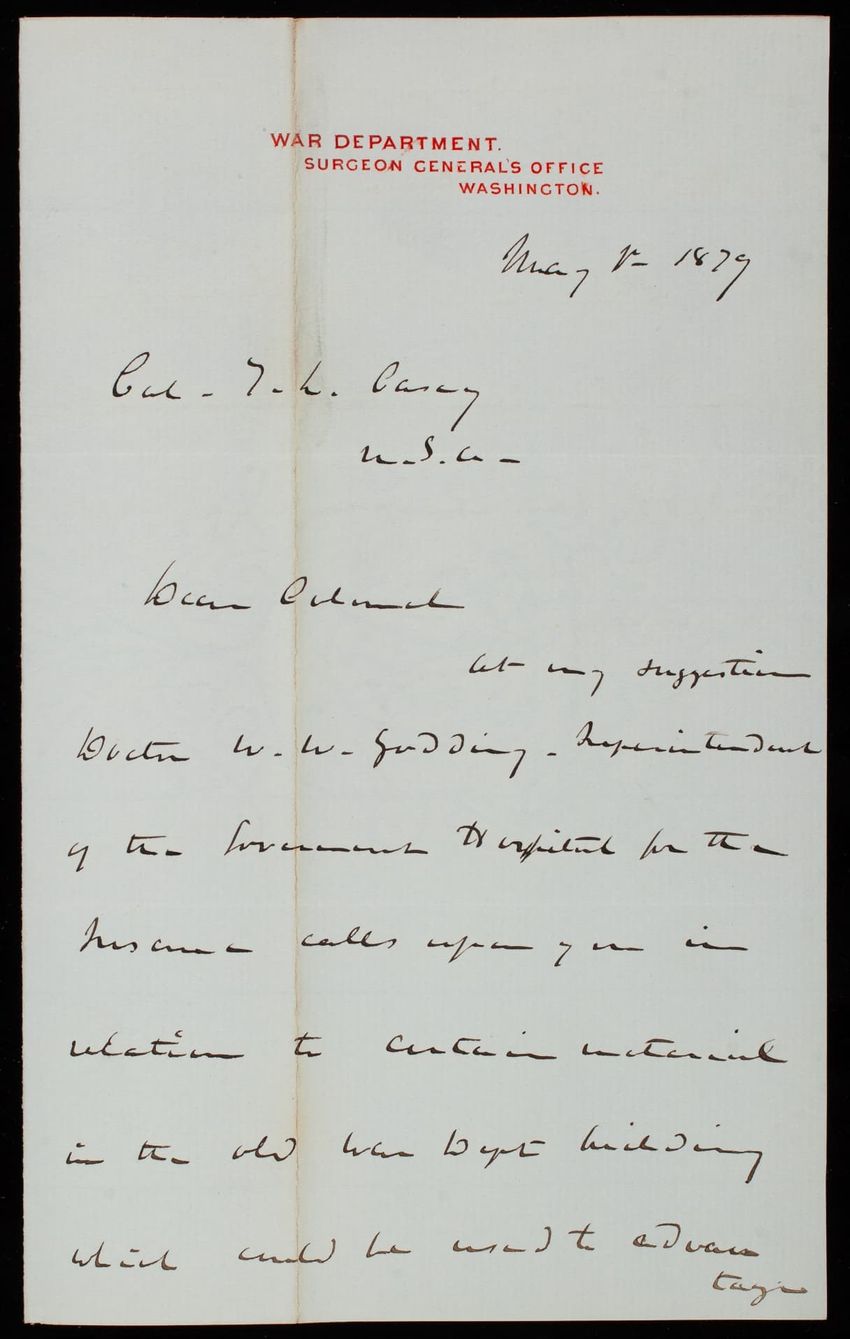 WAR DEPARTMENT.
SURGEON GENERAL'S OFFICE
WASHINGTON.
May 1879
Col. T. L. Casey
U.S.A.
Dear Colonel
At my suggestion
Doctor W. W. Godding - Superintendent
of the Government Hospital for the
Insane calls upon you in
relation to certain material
in the old War Dept building
which could be used to advan
tage